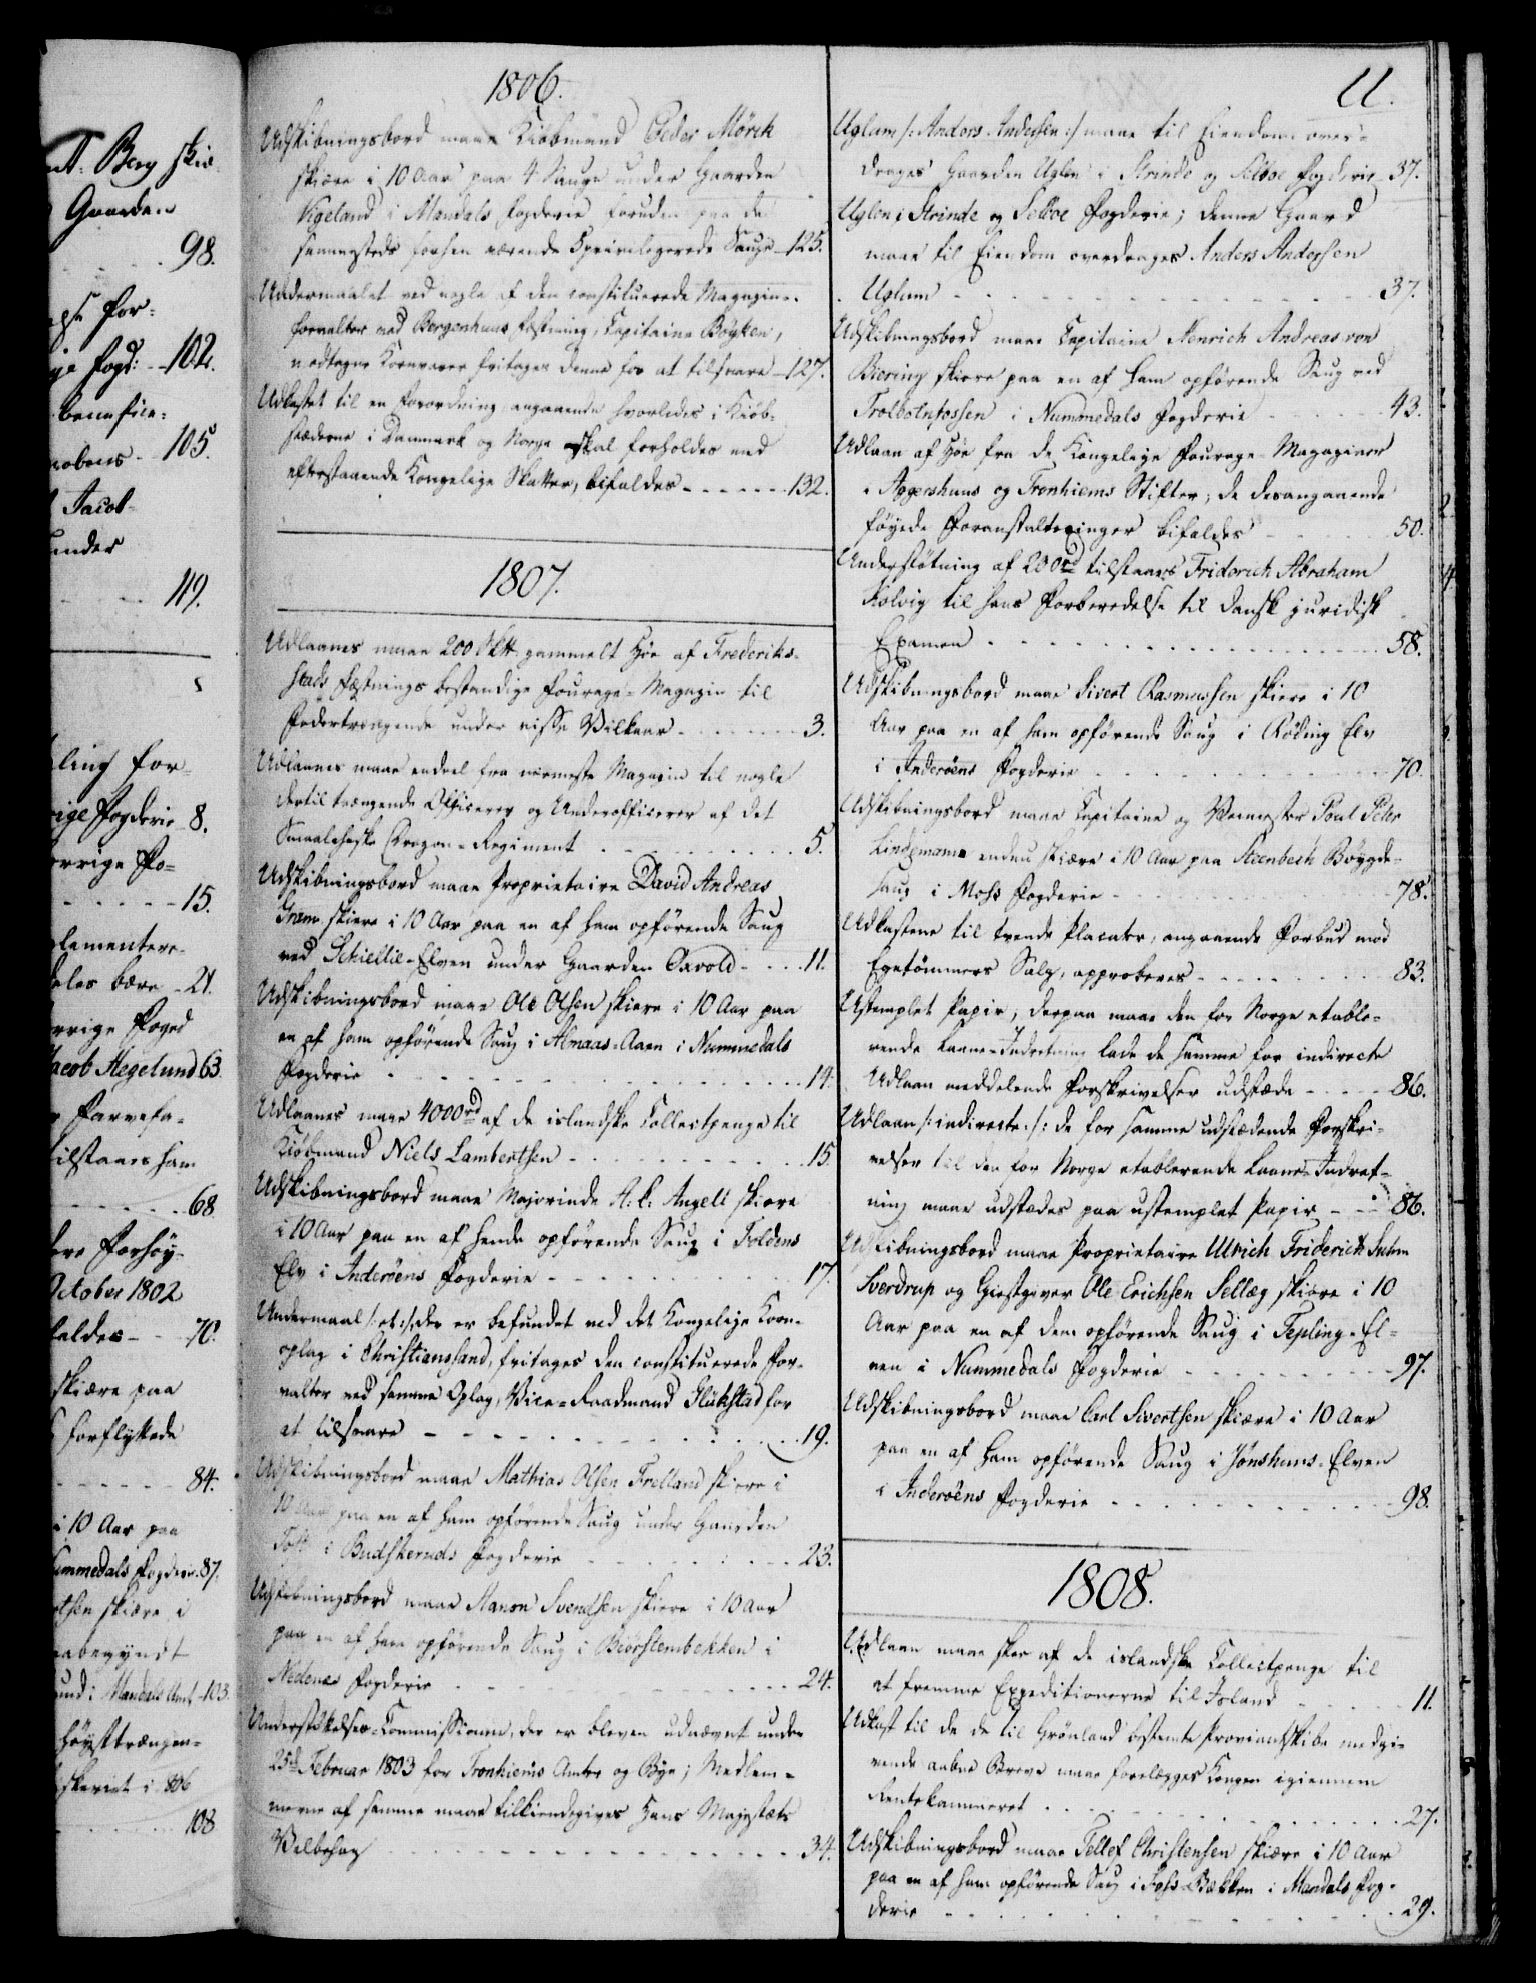 nt: Berg skiæ-
Gaarden
98.
apt for-
ge Fogd: 102.
benefice-
nobens 105.
Jacob
under
119.
ling for-
rige Fogderie 8.
orrige Fo-
15.
plementere-
eles bære 21.
orrige Foged
Jacob Hegelund 63.
r Farvesa-
tilstaaes ham
68
dere Forhöy-
October 1802
faldes 70.
skiære paa
forflyttede
84.
i 10 Aar paa
Nummedals Fogderie 87.
rtsen skiære i
aabegyndt
und i Mandals Amt 103.
höysttrængen-
skeriet i 1806
108
1806.
Udskibningsbord maae Kiöbmand Peder Mörch
skiære i 10 Aar paa 4 Sauge under Gaarden
Vigeland i Mandals Fogderie foruden paa de
sammesteds forhen værende 6 privilegerede Sauge 125.
Undermaalet ved nogle af den constituerede Magazin-
forvalter ved Bergenhuus Fæstning, Capitaine Böyken,
modtagne Kornvarer fritages denne for at tilsvare 127.
Udkastet til en Forordning angaaende hvorledes i Kiöb-
stæderne i Danmark og Norge skal forholdes med
efterstaaende Kongelige Skatter, bifaldes 132.
1807.
Udlaanes maae 200 Sk℔ gammelt Höe af Frederiks-
stads Fæstnings bestandige Fourage-Magazin til
Fodertrængende under visse Vilkaar 3.
Udlaanes maae endeel fra nærmeste Magazin til nogle
dertil trængende Officerer og Underofficerer af det
Smaalehnske Dragon-Regiment 5.
Udskibningsbord maae Proprietaire David Andreas
Gram skiære i 10 Aar paa en af ham opförende Saug
ved Schiellie-Elven under Gaarden Oxvold 11.
Udskibningsbord maae Ole Olsen skiære i 10 Aar paa
en af ham opförende Saug i Almaas-Aaen i Nummedals
Fogderie 14.
Udlaanes maae 4000 rd af de islandske Collectpenge til
Kiöbmand Niels Lambertsen 15.
Udskibningsbord maae Majorinde A: C: Angell skiære
i 10 Aar paa en af hende opförende Saug i Foldens
Elv i Inderöens Fogderie 17.
Undermaal /: et :/ der er befundet ved det Kongelige Korn-
oplag i Christianssand, fritages den constituerede For-
valter ved samme Oplag, Vice-Raadmand Glükstad for
at tilsvare 19.
Udskibningsbord maae Mathias Olsen Frelland skiære i
10 Aar paa en af ham opförende Saug under Gaarden
Toft i Budskeruds Fogderie 23.
Udskibningsbord maae Hanson Svendsen skiære i 10 Aar
paa en af ham opförende Saug i Biörstembekken i
Nedenes Fogderie 24.
Understöttelses-Commissionen, der er bleven udnævnt under
25de Februar 1803 for Tronhiems Amter og Bye; Medlem-
merne af samme maae tilkiendegives Hans Majestæts
Velbehag 34.
11.
Uglum /: Anders Andersen :/ maae til Eiendom over-
drages Gaarden Uglen i Strinde og Selboe Fogderie 37.
Uglen i Strinde og Selboe Fogderie; denne Gaard
maae til Eiendom overdrages Anders Andersen
Uglum 37.
Udskibningsbord maae Capitaine Henrich Andreas von
Biering skiære paa en af ham opförende Saug ved
Trolbolnfossen i Nummedals Fogderie 43.
Udlaan af Höe fra de Kongelige Fourage-Magaziner
i Aggershuus og Tronhiems Stifter; de desangaaende
föyede Foranstaltninger bifaldes 50.
Understötning af 200 rd tilstaaes Friderich Abraham
Kolvig til hans Forberedelse til dansk juridisk
Examen 58.
Udskibningsbord maae Sivert Rasmussen skiære i 10
Aar paa en af ham opförende Saug i Röding Elv
i Inderöens Fogderie 70.
Udskibningsbord maae Capitaine og Veimester Poul Peter
Lindemann endnu skiære i 10 Aar paa Steenbech Böygde-
saug i Moss Fogderie 78.
Udkastene til tvende Placater, angaaende Forbud mod
Egetömmers Salg, approberes 83.
Ustemplet Papir, derpaa maae den for Norge etable-
rende Laane-Indretning lade de samme for indirecte
Udlaan meddelende Forskrivelser udstæde 86.
Udlaan /: indirecte :/ de for samme udstædende Forskri-
velser til den for Norge etablerende Laane-Indret-
ning maae udstædes paa ustemplet Papir 86.
Udskibningsbord maae Proprietaire Ulrich Friderich Suhm
Sverdrup og Giestgiver Ole Erichsen Sellæg skiære i 10
Aar paa en af dem opförende Saug i Tepling-El-
ven i Nummedals Fogderie 97.
Udskibningsbord maae Carl Sivertsen skiære i 10 Aar
paa en af ham opförende Saug i Hönshuus-Elven
i Inderöens Fogderie 98.
1808.
Udlaan maae skee af de islandske Collectpenge til
at fremme Expeditionerne til Island 11.
Udkast til de de til Grönland bestemte Proviantskibe medgi-
vende aabne Breve maae forelægges Kongen igiennem
Rentekammeret 27.
Udskibningsbord maae Tellef Christensen skiære i 10 Aar
paa en af ham opförende Saug i Foss-Bækken i Mandals Fog-
derie 29.